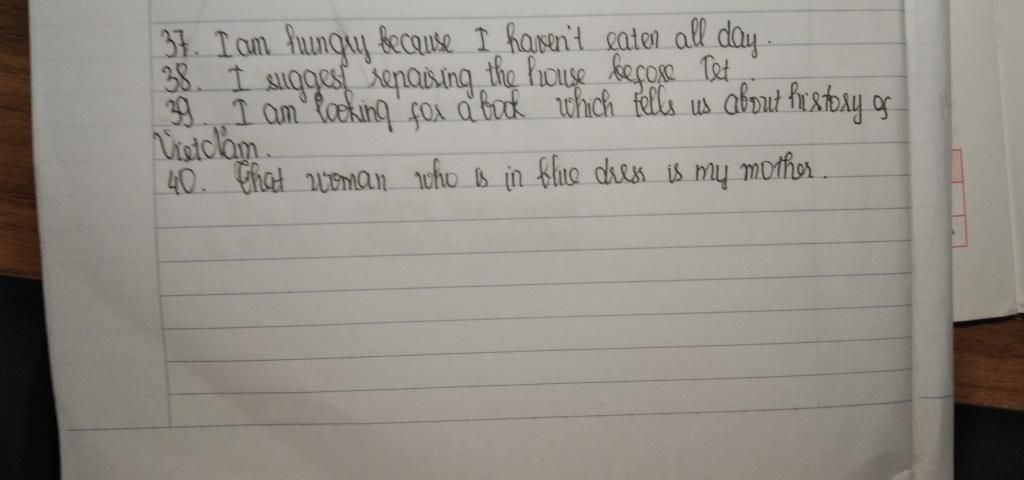 37. I am hungry because I haven't eaten all day.
38. I suggest repairing the house before Tet.
39. I am looking for a book which tells us about history of
VietNam.
40. That woman who is in blue dress is my mother.